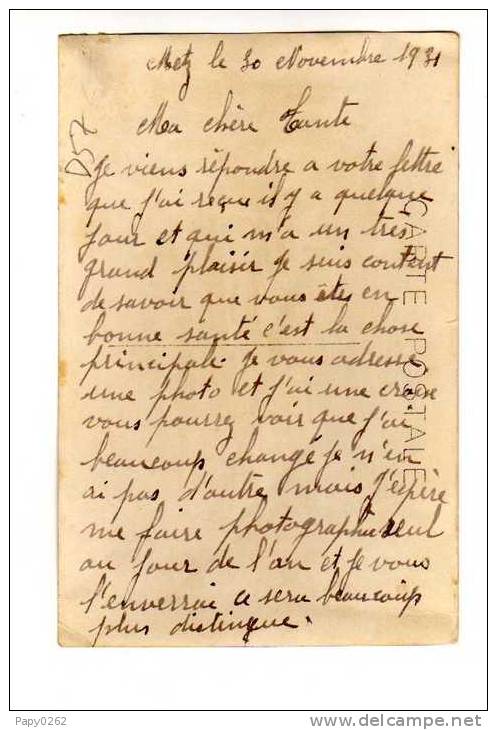 Metz le 30 Novembre 1931
D57
Ma chère Tante
Je viens répondre a votre lettre
que j'ai reçue il y a quelque
jour et qui m'a un très
grand plaisir je suis content
de savoir que vous êtes en
bonne santé c'est la chose
principale. Je vous adresse
une photo et j'ai une croix
vous pourrez voir que j'ai
beaucoup changé je n'en
ai pas d'autre mais j'espère
me faire photographier seul
au jour de l'an et je vous
l'enverrai ce sera beaucoup
plus distingue.
CARTE POSTALE
Papy0262